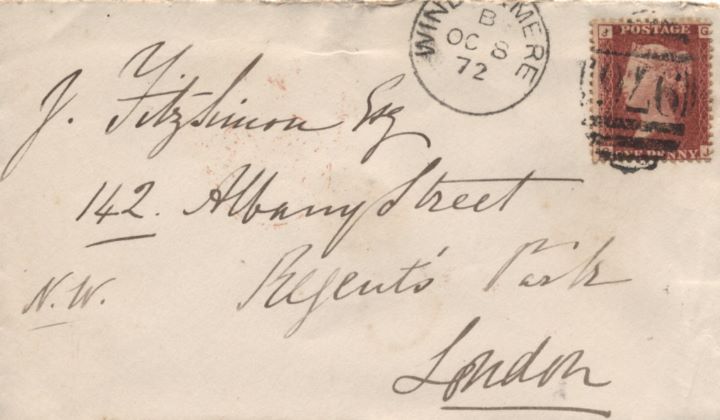 WINDERMERE
B
OC 8
72
J G
POSTAGE
ONE PENNY
G J
J. Fitzsimon Esq
142. Albany Street
N.W. Regent's Park
London